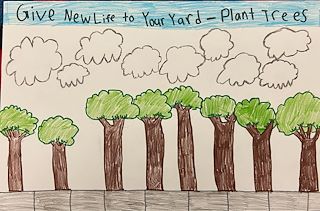 Give New Life to Your Yard - Plant Trees